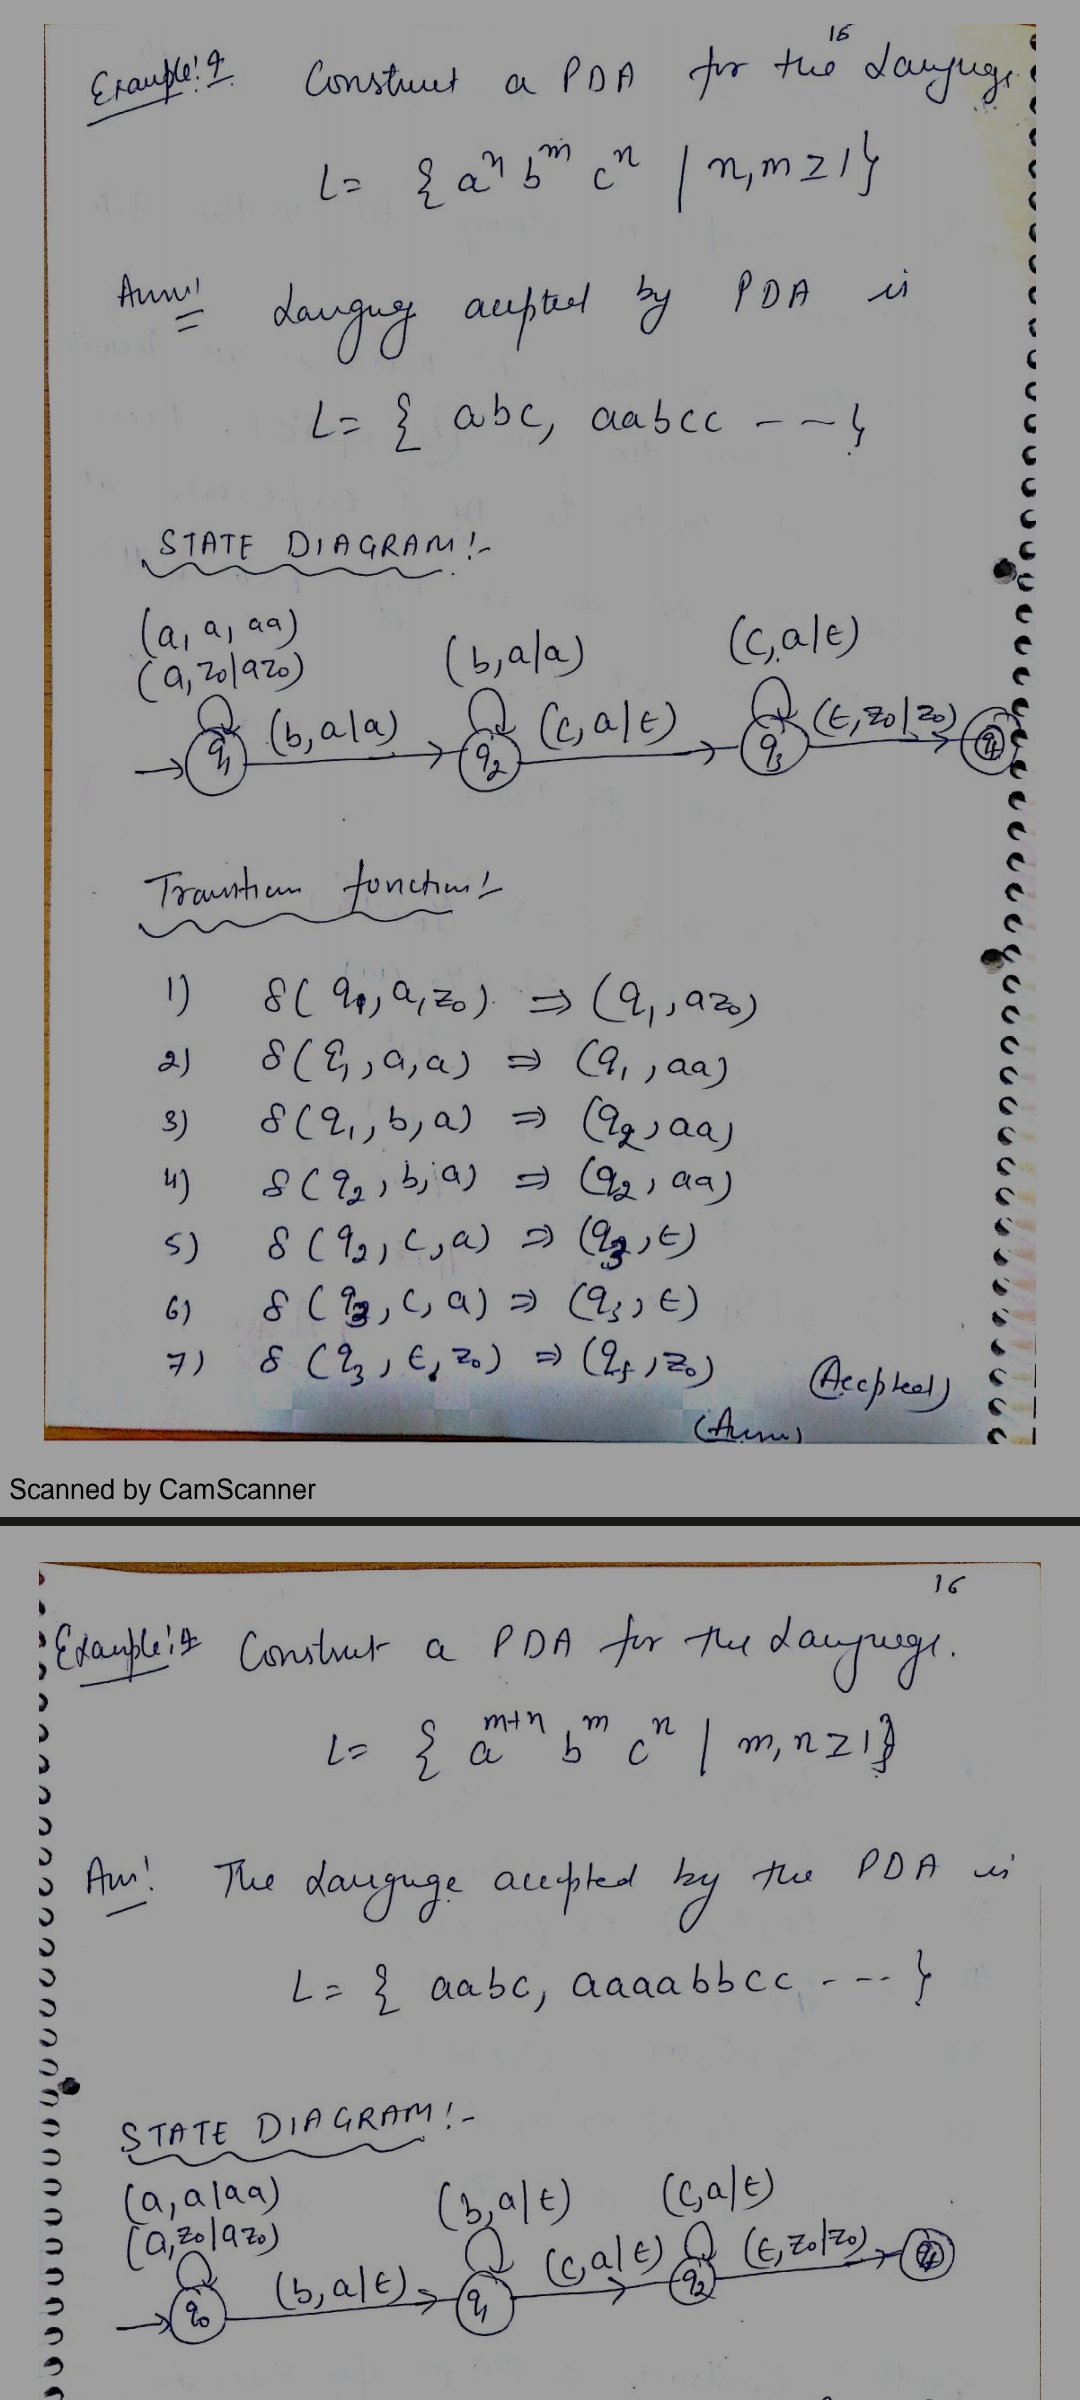 15
Example:9 Construct a PDA for the Language
L= { aⁿ bᵐ cⁿ | n,m ≥ 1 }
Language accepted by PDA is
L= { abc, aabcc --- }
STATE DIAGRAM:-
(a, a, aa)
(a, z₀|az₀)
(b, a|a)
(c, a|ε)
(b, a|a)
(c, a|ε)
(ε, z₀|z₀)
q₁
q₂
q₃
Transition function:-
1) δ(q₁, a, z₀) ⇒ (q₁, az₀)
2) δ(q₁, a, a) ⇒ (q₁, aa)
3) δ(q₁, b, a) ⇒ (q₂, aa)
4) δ(q₂, b, a) ⇒ (q₂, aa)
5) δ(q₂, c, a) ⇒ (q₃, ε)
6) δ(q₃, c, a) ⇒ (q₃, ε)
7) δ(q₃, ε, z₀) ⇒ (qf, z₀)
(Accepted)
Scanned by CamScanner
16
Example: Construct a PDA for the Language.
L= { aᵐ⁺ⁿ bᵐ cⁿ | m, n ≥ 1 }
Ans! The Language accepted by the PDA is
L= { aabc, aaaabbcc --- }
STATE DIAGRAM:-
(a, a|aa)
(a, z₀|az₀)
(b, a|ε)
(c, a|ε)
(b, a|ε)
(c, a|ε)
(ε, z₀|z₀)
q₀
q₁
q₂